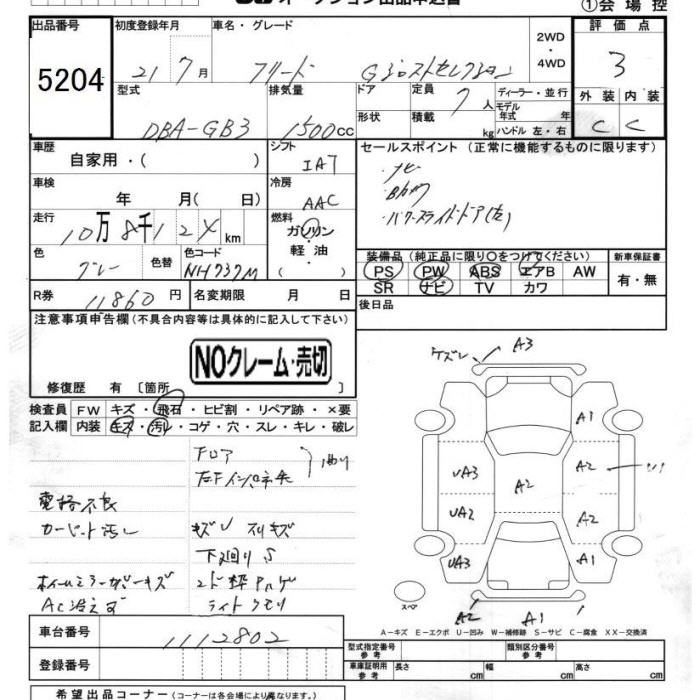 オークション出品申込書
①会場控
出品番号
5204
初度登録年月
21 7月
車名・グレード
フリード Gジャストセレクション
2WD
・
4WD
評価点
3
型式
DBA-GB3
排気量
1500cc
ドア
形状
定員
7人
積載
kg
ディーラー・並行
モデル
年式 年
ハンドル 左・右
外装
内装
C
C
車歴
自家用・( )
シフト
IA7
セールスポイント (正常に機能するものに限ります)
・ナビ
・Bカメ
・パワースライドドア(左)
車検
年 月( 日)
冷房
AAC
走行
10万8千124km
燃料
ガソリン
・
軽油
( )
色
グレー
色替
色コード
NH737M
装備品(純正品に限り○をつけてください)
PS
PW
ABS
エアB
AW
SR
ナビ
TV
カワ
新車保証書
有・無
R券
11860円
名変期限 月 日
後日品
注意事項申告欄(不具合内容等は具体的に記入して下さい)
NOクレーム・売切
修復歴 有 〔箇所
検査員
記入欄
FW
キズ・飛石・ヒビ割・リペア跡・×要
内装
キズ・汚レ・コゲ・穴・スレ・キレ・破レ
フロア
曲り
電格不良
カーペット汚レ
下廻りS
ホイールミラーガバーキズ
AC冷えず
ライトクモリ
ケズレ
A3
A1
UA3
A2
A2
UA2
A2
UA3
A1
スペア
A2
A1
A-キズ E-エクボ U-凹み W-補修跡 S-サビ C-腐食 XX-交換済
車台番号
1112802
登録番号
型式指定番号
参考
類別区分番号
参考
車庫証明用
参考
長さ cm
幅 cm
高さ cm
希望出品コーナー(コーナーは各会場により異なります。)